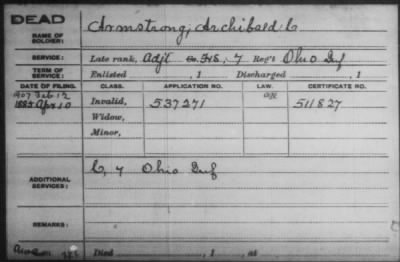 DEAD
NAME OF SOLDIER: Armstrong, Archibald C
SERVICE: Late rank, Adjt Co. F&S; 7 Reg't Ohio Inf
TERM OF SERVICE: Enlisted , 1 Discharged , 1
DATE OF FILING. CLASS. APPLICATION NO. LAW. CERTIFICATE NO.
1907 Feb 12
1885 Apr 10 Invalid, 537271 511827
Widow,
Minor,
ADDITIONAL SERVICES: C, 7 Ohio Inf
REMARKS:
Died , 1 , at